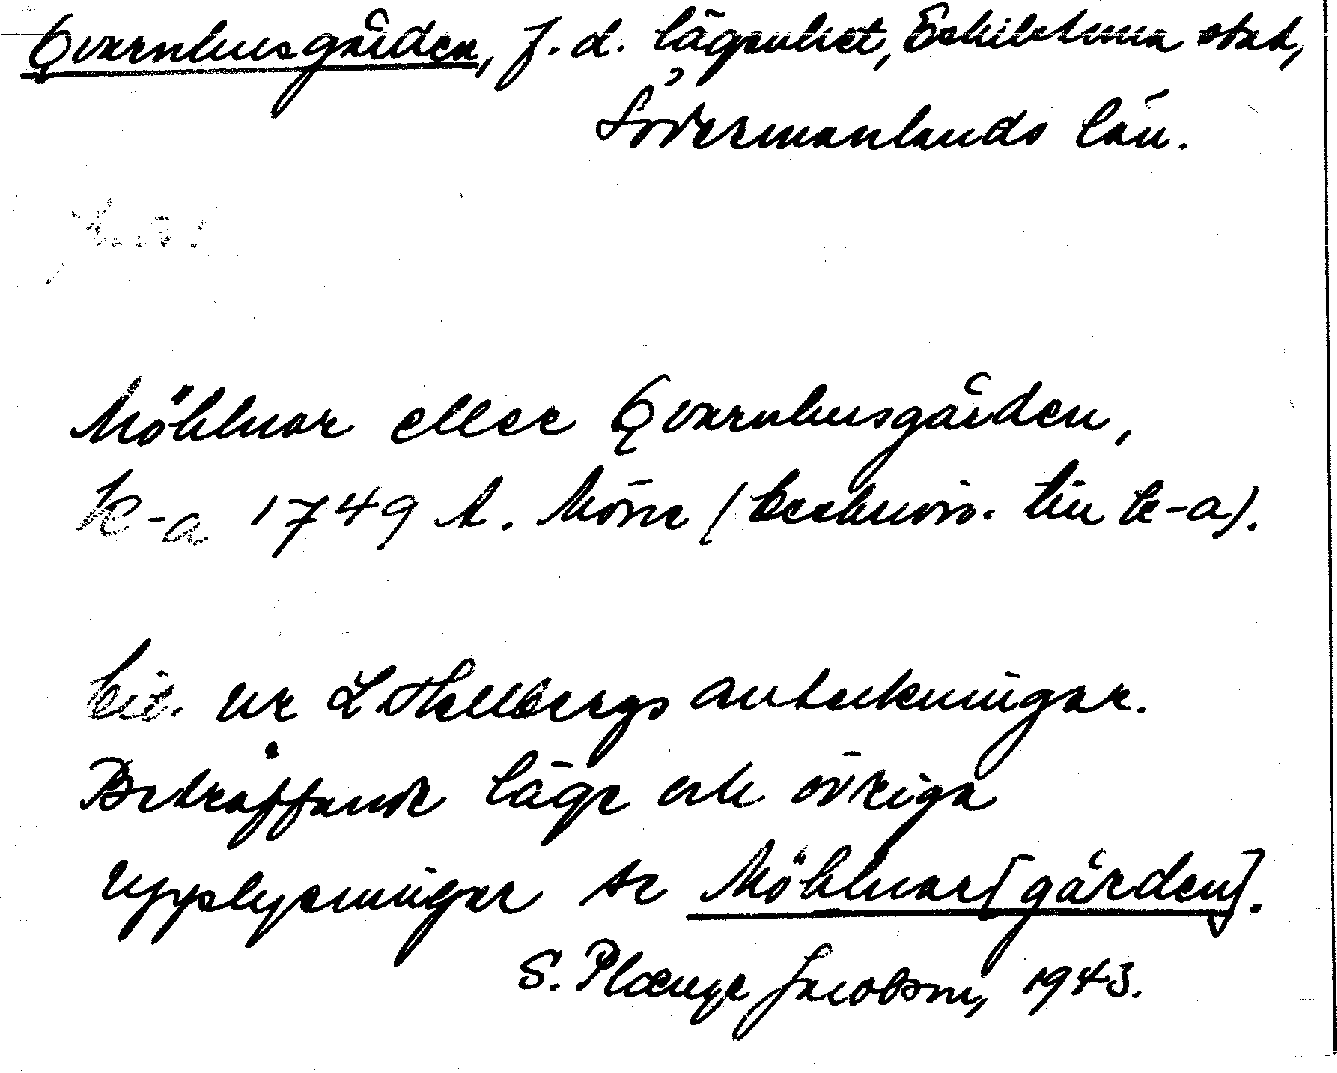 Qvarnhusgården, f. d. lägenhet, Eskilstuna stad,
Södermanlands län.
Möhlnar eller Qvarnhusgården,
k-a 1749 A. Mörn (beskrivn. till k-a).
ur L Hallbergs anteckningar.
Beträffande läge och övriga
upplysningar se Möhlnar[gården].
S. Plænge Jacobson, 1943.